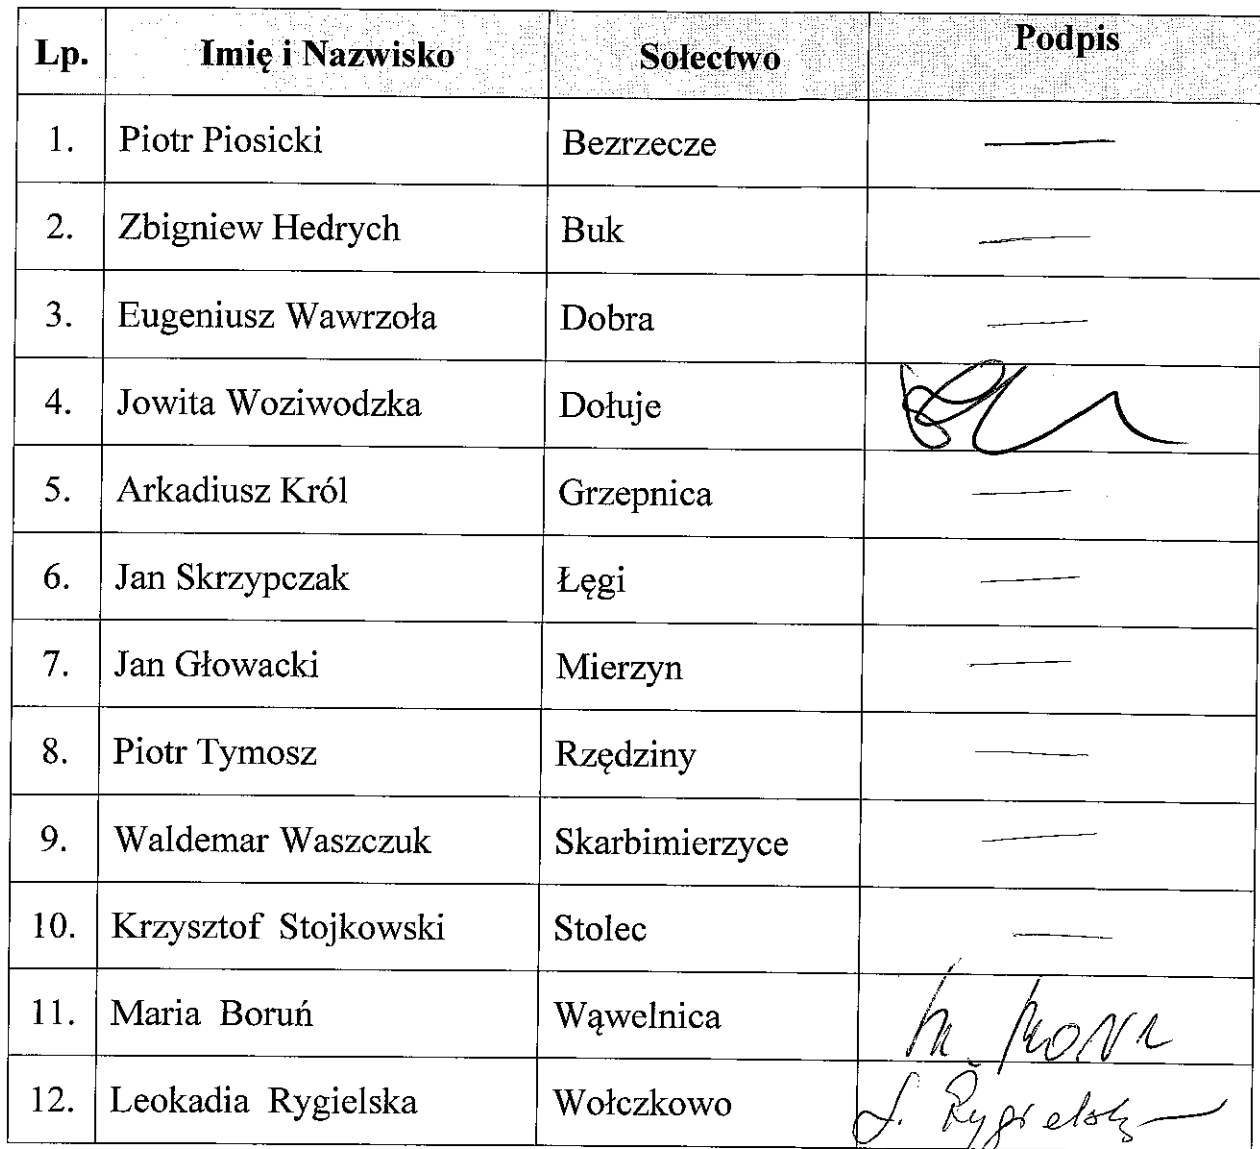 Lp. Imię i Nazwisko Sołectwo Podpis
1. Piotr Piosicki Bezrzecze —
2. Zbigniew Hedrych Buk —
3. Eugeniusz Wawrzoła Dobra —
4. Jowita Woziwodzka Dołuje
5. Arkadiusz Król Grzepnica —
6. Jan Skrzypczak Łęgi —
7. Jan Głowacki Mierzyn —
8. Piotr Tymosz Rzędziny —
9. Waldemar Waszczuk Skarbimierzyce —
10. Krzysztof Stojkowski Stolec —
11. Maria Boruń Wąwelnica M.
12. Leokadia Rygielska Wołczkowo L. Rygielska